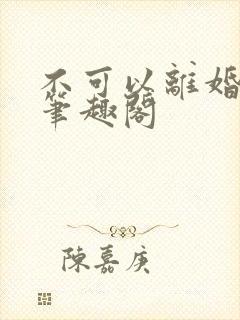 不可以離婚
筆趣閣
陳嘉庚